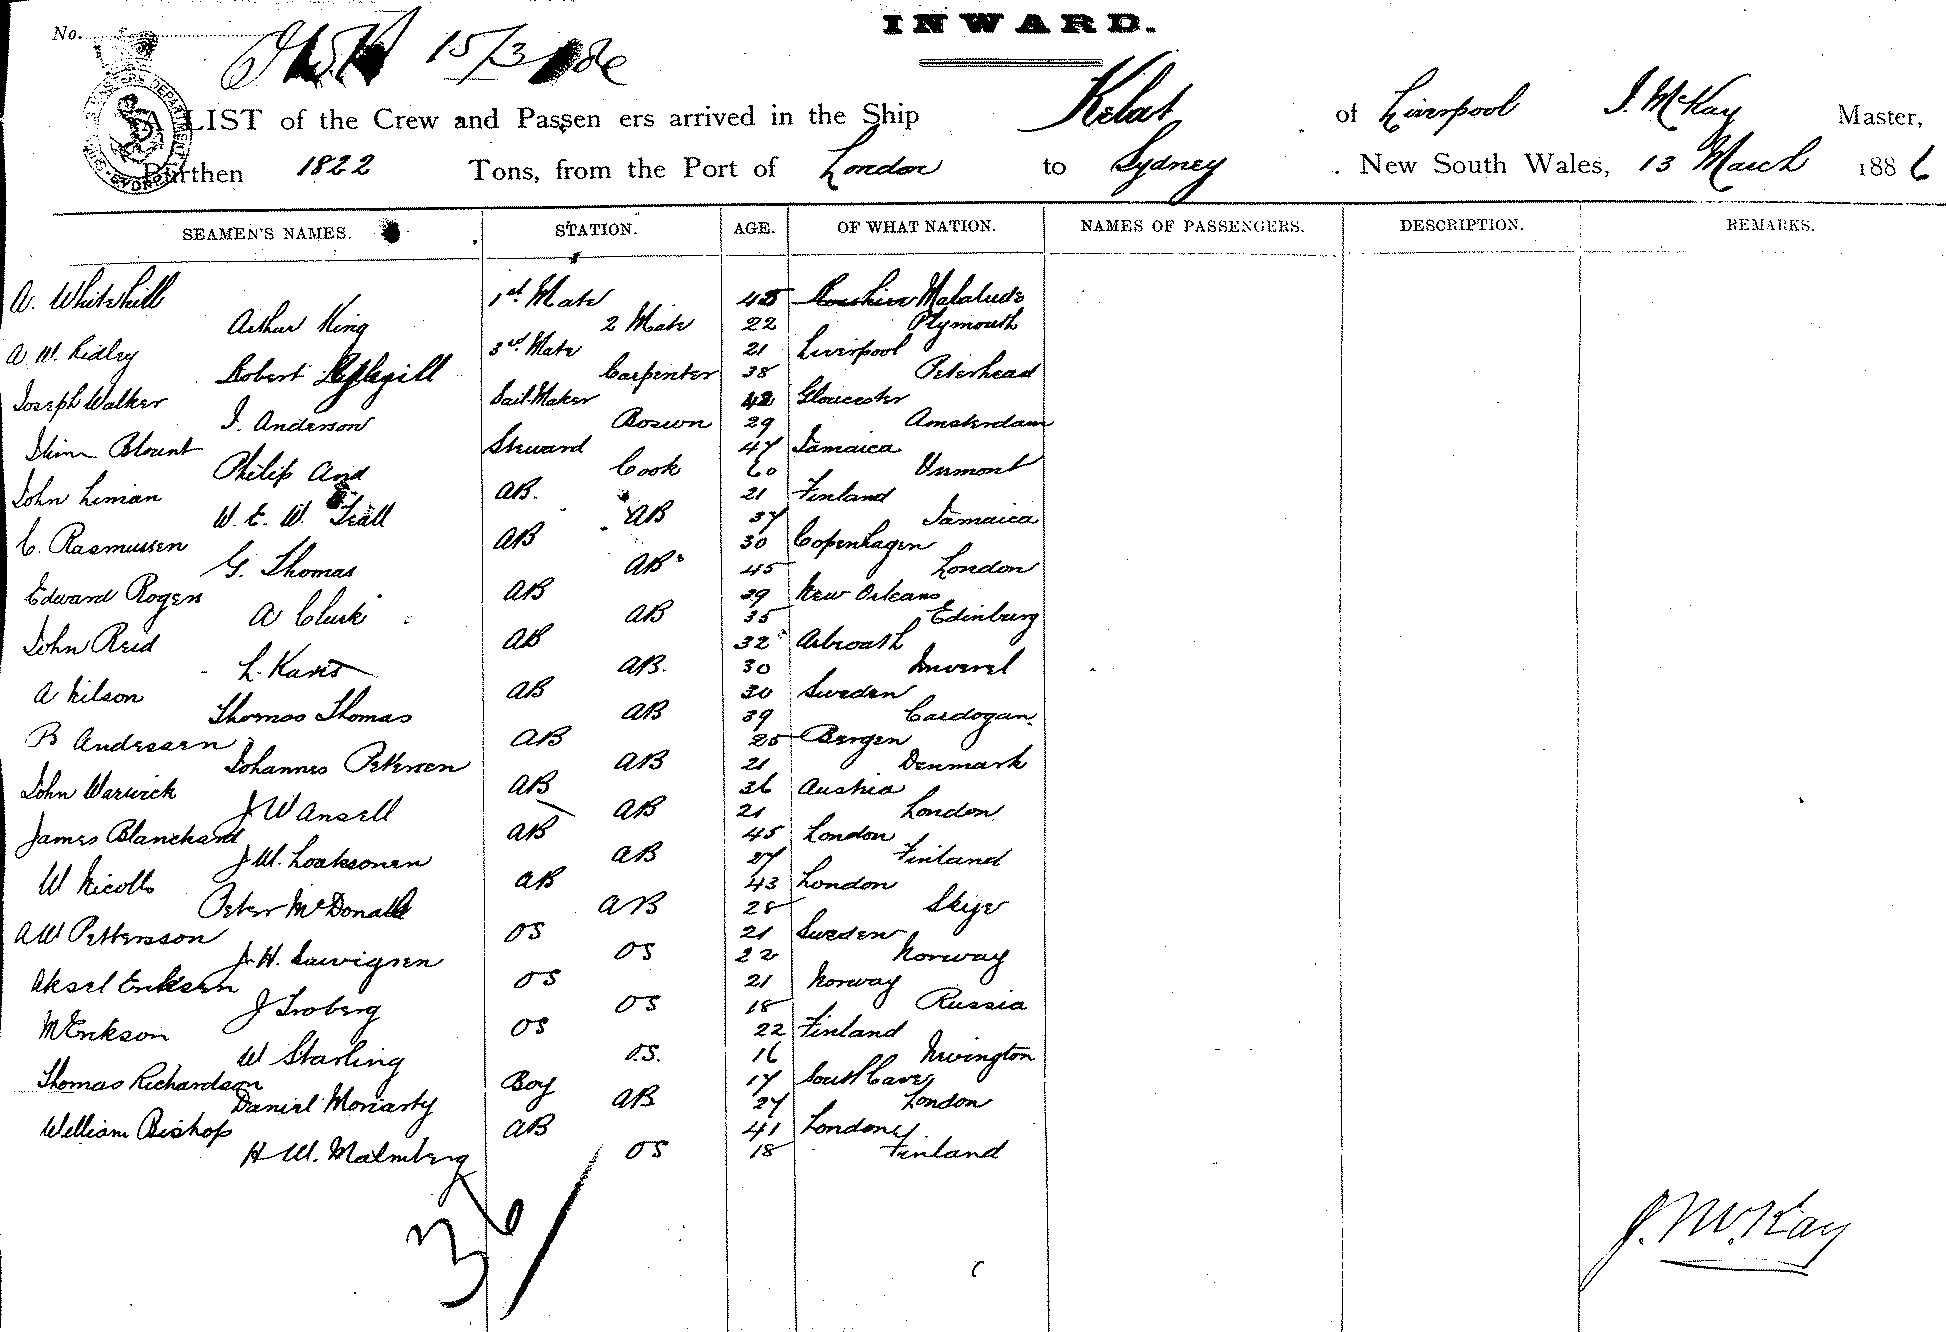 INWARD.
No.
15/3/86
LIST of the Crew and Passen ers arrived in the Ship Kelat of Liverpool J. McKay Master,
Burthen 1822 Tons, from the Port of London to Sydney New South Wales, 13 March 1886
SEAMEN'S NAMES. STATION. AGE. OF WHAT NATION. NAMES OF PASSENGERS. DESCRIPTION. REMARKS.
A. Whitehill 1st Mate 45
Arthur King 2 Mate 22 Plymouth
A W. Ridley 3rd Mate 21 Liverpool
Robert Carpenter 38 Peterhead
Joseph Walker Sail Maker 42 Gloucester
J. Anderson Boswn 29 Amsterdam
Blount Steward 47 Jamaica
Philip Cook 60 Vermont
John Liman AB. 21 Finland
W. E. W. AB 37 Jamaica
C. Rasmussen AB 30 Copenhagen
G. Thomas AB 45 London
Edward Rogers AB 29 New Orleans
A Clark AB 35 Edinburg
John Reid AB 32 Arbroath
L. AB. 30
A Nilson AB 30 Sweden
Thomas Thomas AB 39 Cardogan.
B Andersen AB 25 Bergen
Johannes Petersen AB 21 Denmark
John Warwick AB 36 Austria
J W Ansell AB 21 London
James Blanchard AB 45 London
J. W. Loaksonen AB 27 Finland
W Nicolls AB 43 London
Peter McDonald AB 28 Skye
A W Pettersson OS 21 Sweden
J. H. OS 22 Norway
Aksel Eriksen OS 21 Norway
J OS 18 Russia
M Erikson OS 22 Finland
W Starling OS. 16 Newington
Thomas Richardson Boy 17 South Cave
Daniel Moriarty AB 27 London
William Bishop AB 41 London
H W. Malmberg OS 18 Finland
36/
J. McKay